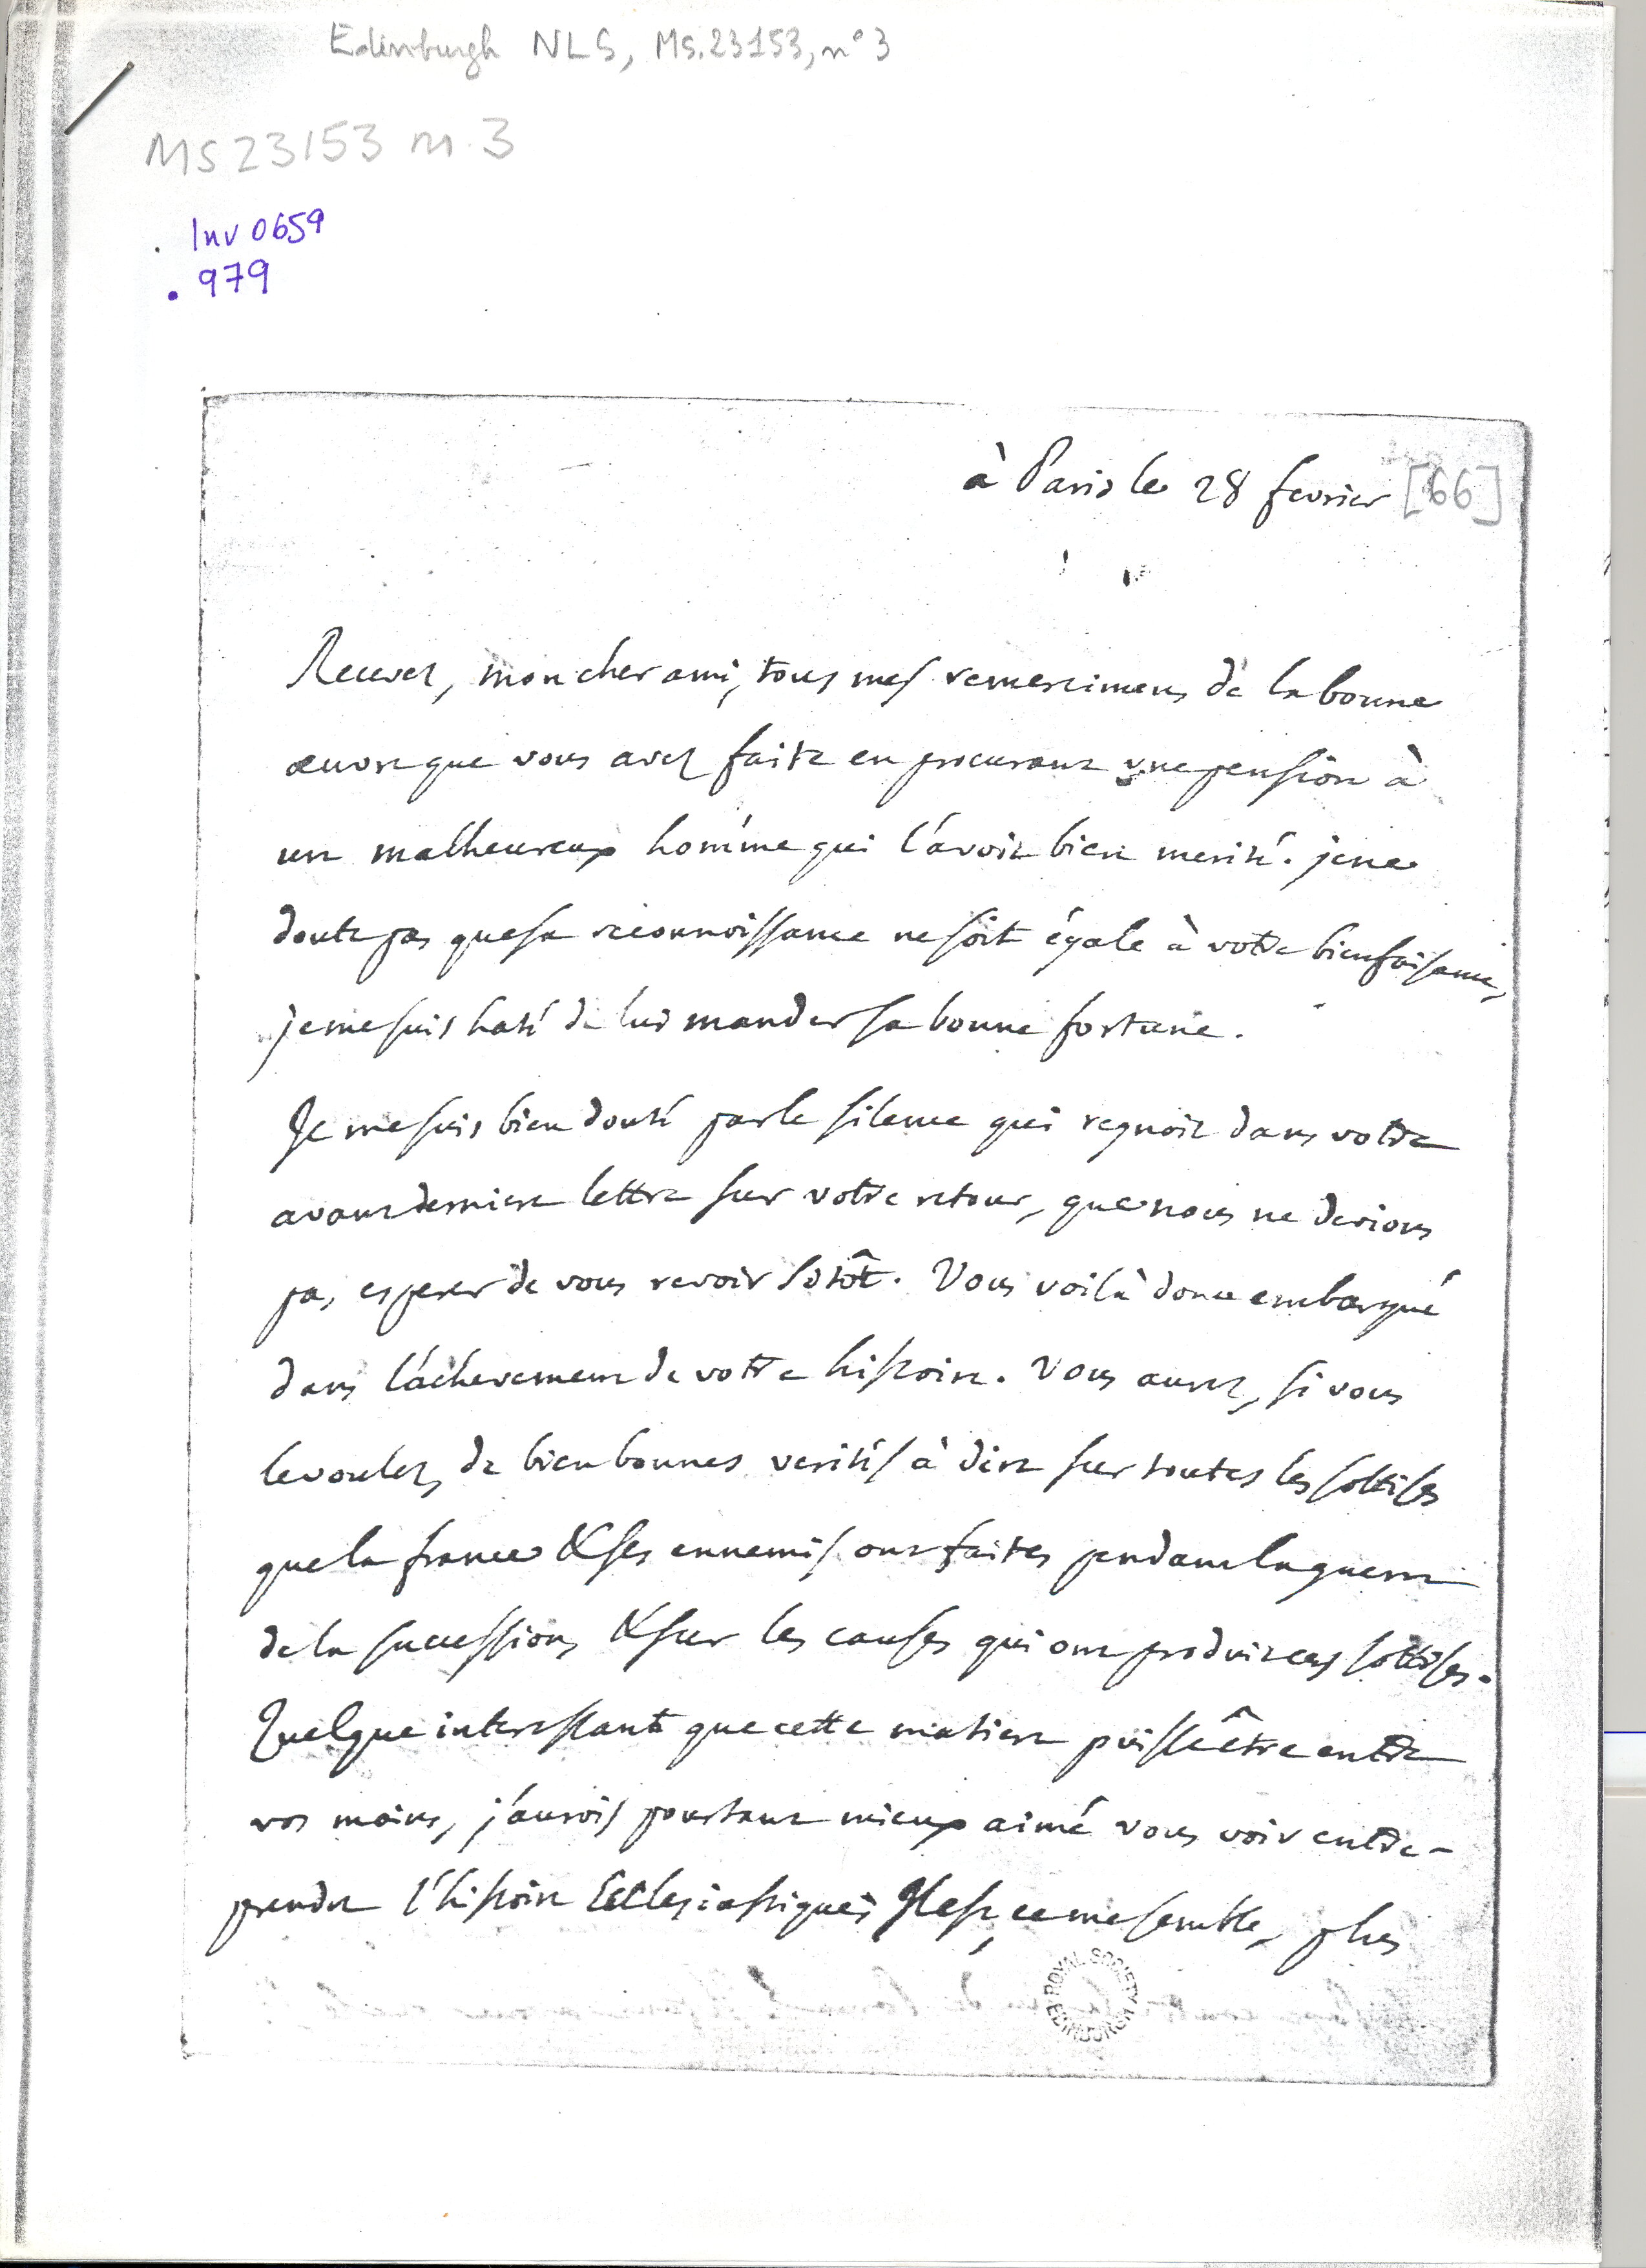 Edinburgh NLS, Ms.23153, n° 3
MS 23153 n. 3
. Inv 0659
. 979
à Paris le 28 fevrier [66]
Recevez, mon cher ami, tous mes remercimens de la bonne
œuvre que vous avez faite en procurant une pension à
un malheureux homme qui l'avoit bien merité. je ne
doute pas que sa reconnoissance ne soit égale à votre bienfaisance,
je me suis haté de lui mander sa bonne fortune.
Je me suis bien douté par le silence qui regnoit dans votre
avant derniere lettre sur votre retour, que nous ne devions
pas esperer de vous revoir sitôt. Vous voilà donc embarqué
dans l'achevement de votre histoire. Vous aurez, si vous
le voulez, de bien bonnes verités à dire sur toutes les sottises
que la france & ses ennemis ont faites pendant la guerre
de la succession, & sur les causes qui ont produit ces sottises.
Quelque interessante que cette matiere puisse être entre
vos mains, j'aurois pourtant mieux aimé vous voir entre-
prendre l'histoire Ecclesiastique; Il est, ce me semble, plus
ROYAL SOCIETY
EDINBURGH